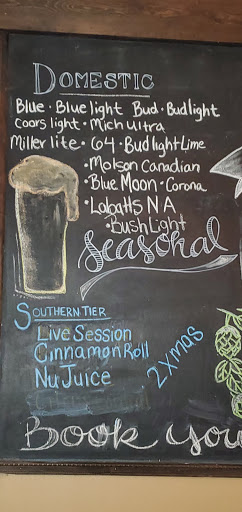 DOMESTIC
Blue · Blue light Bud · Budlight
Coors light · Mich ultra
Miller lite · 64 · Bud light Lime
· Molson Canadian
· Blue Moon · Corona
· Labatts NA
· Bush Light
Seasonal
SOUTHERN TIER
Live Session
Cinnamon Roll
Nu Juice
2xmas
Book You